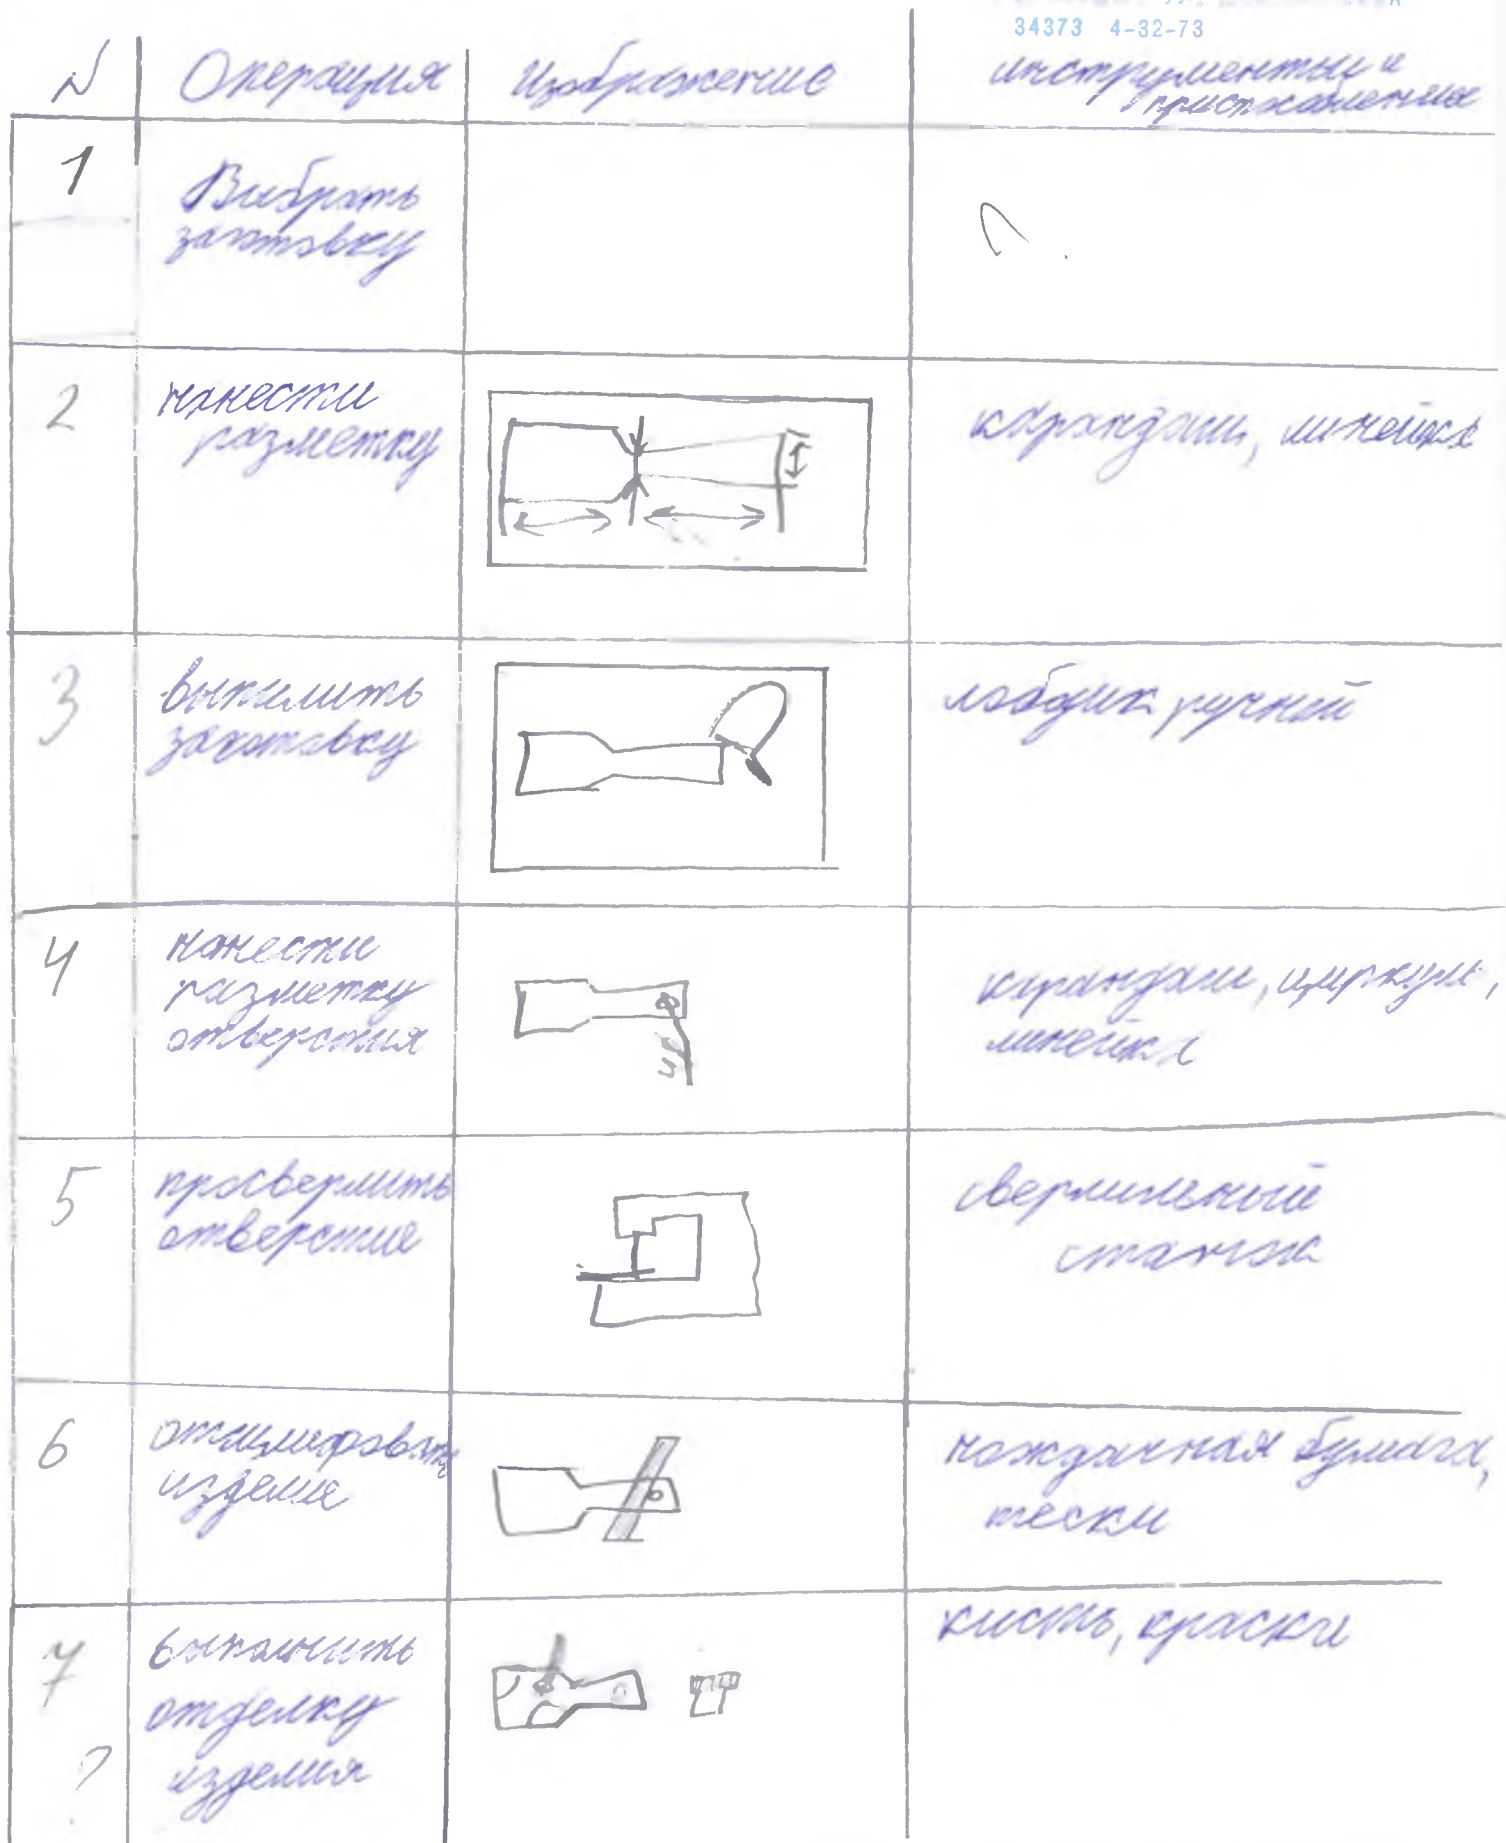 34373 4-32-73
N Операция Изображение инструменты и
приспособления
1 Выбрать
заготовку
?
2 нанести
разметку
карандаш, линейка
3 выпилить
заготовку
лобзик ручной
4 нанести
разметку
отверстия
карандаш, циркуль,
линейка
5 просверлить
отверстие
сверлильный
станок
6 отшлифовать
изделие
наждачная бумага,
тески
7 выполнить
отделку
изделия
?
кисть, краски